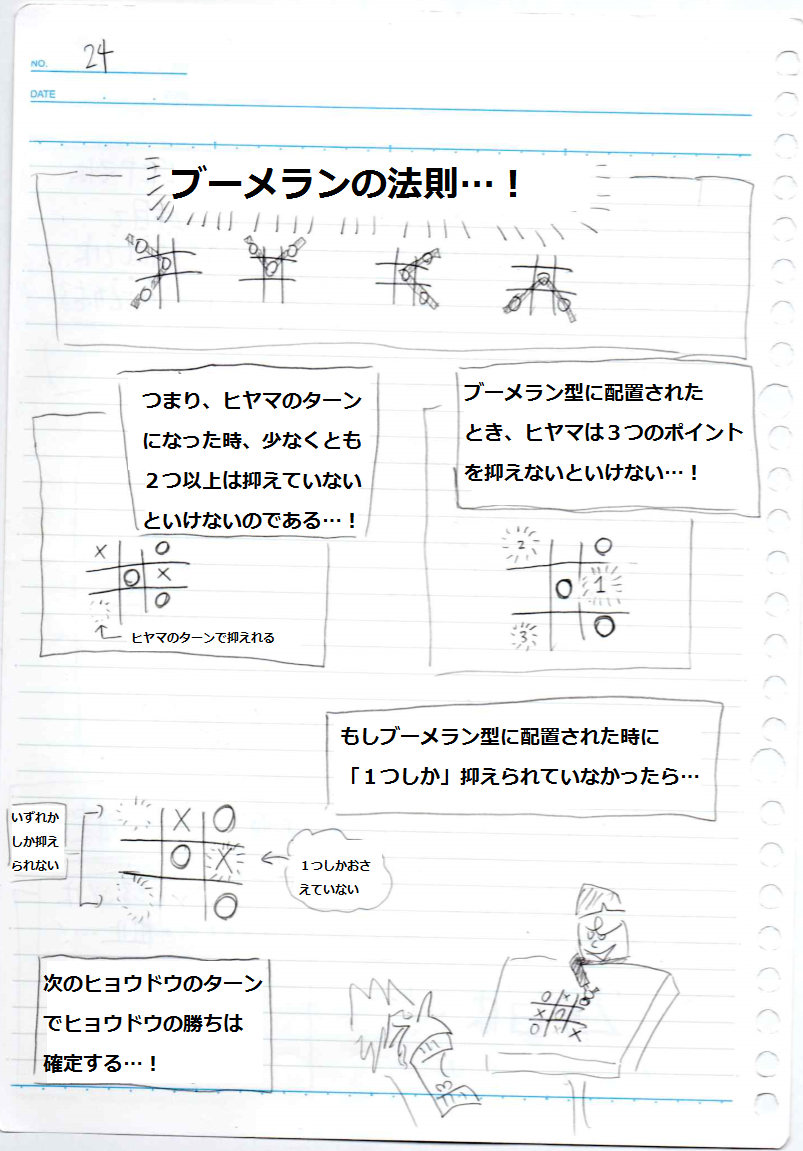 NO. 24
DATE
ブーメランの法則…！
つまり、ヒヤマのターン
になった時、少なくとも
２つ以上は抑えていない
といけないのである…！
× ○
○ ×
○
ヒヤマのターンで抑えれる
ブーメラン型に配置された
とき、ヒヤマは３つのポイント
を抑えないといけない…！
2 ○
○ 1
3 ○
もしブーメラン型に配置された時に
「１つしか」抑えられていなかったら…
いずれか
しか抑え
られない
× ○
○ ×
○
１つしかおさ
えていない
次のヒョウドウのターン
でヒョウドウの勝ちは
確定する…！